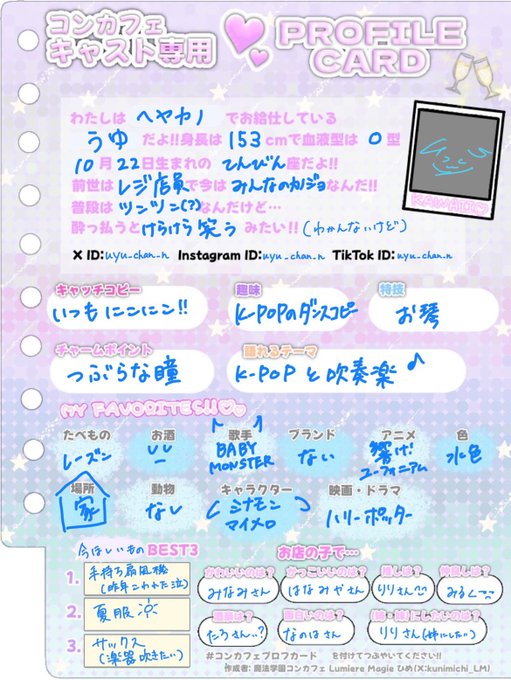 コンカフェ
キャスト専用
PROFILE
CARD
わたしは ヘヤカノ でお給仕している
うゆ だよ!!身長は 153 cmで血液型は O 型
10 月 22 日生まれの てんびん 座だよ!!
前世は レジ店員 で今は みんなのカノジョ なんだ!!
普段は ツンツン(?) なんだけど…
酔っ払うと けらけら笑う みたい!! (わかんないけど)
KAWAII♡
X ID: uyu_chan_n Instagram ID: uyu_chan_n TikTok ID: uyu_chan_n
キャッチコピー 趣味 特技
いつもにこにこ!! K-POPのダンスコピー お琴
チャームポイント 語れるテーマ
つぶらな瞳 K-POPと吹奏楽♪
MY FAVORITES!!♡♡
たべもの お酒 歌手 ブランド アニメ 色
レーズン BABY MONSTER ない 響け!ユーフォニアム 水色
場所 動物 キャラクター 映画・ドラマ
家 なし シナモン マイメロ ハリーポッター
今ほしいもの BEST3
1. 手持ち扇風機
(昨年こわれた泣)
2. 夏服
3. サックス
(楽器吹きたい)
お店の子で…
かわいいのは? かっこいいのは? 推しは? 仲良しは?
みなみさん はなみやさん りりさん みるく
酒豪は? 面白いのは? 姉・妹にしたいのは?
たろさん..? なのはさん りりさん(姉にしたい)
#コンカフェプロフカード を付けてつぶやいてください!!
作成者: 魔法学園コンカフェ Lumiere Magie ひめ(X:kunimichi_LM)